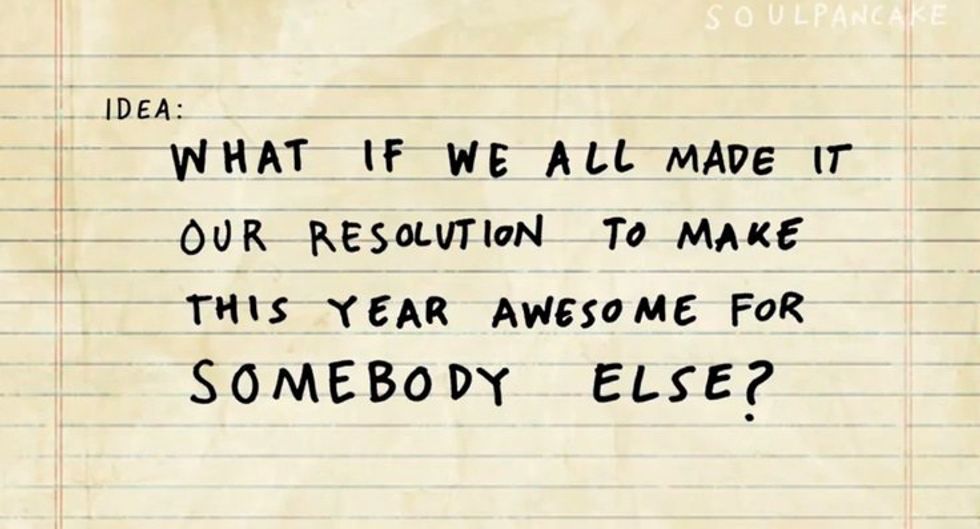 SOULPANCAKE
IDEA:
WHAT IF WE ALL MADE IT
OUR RESOLUTION TO MAKE
THIS YEAR AWESOME FOR
SOMEBODY ELSE?